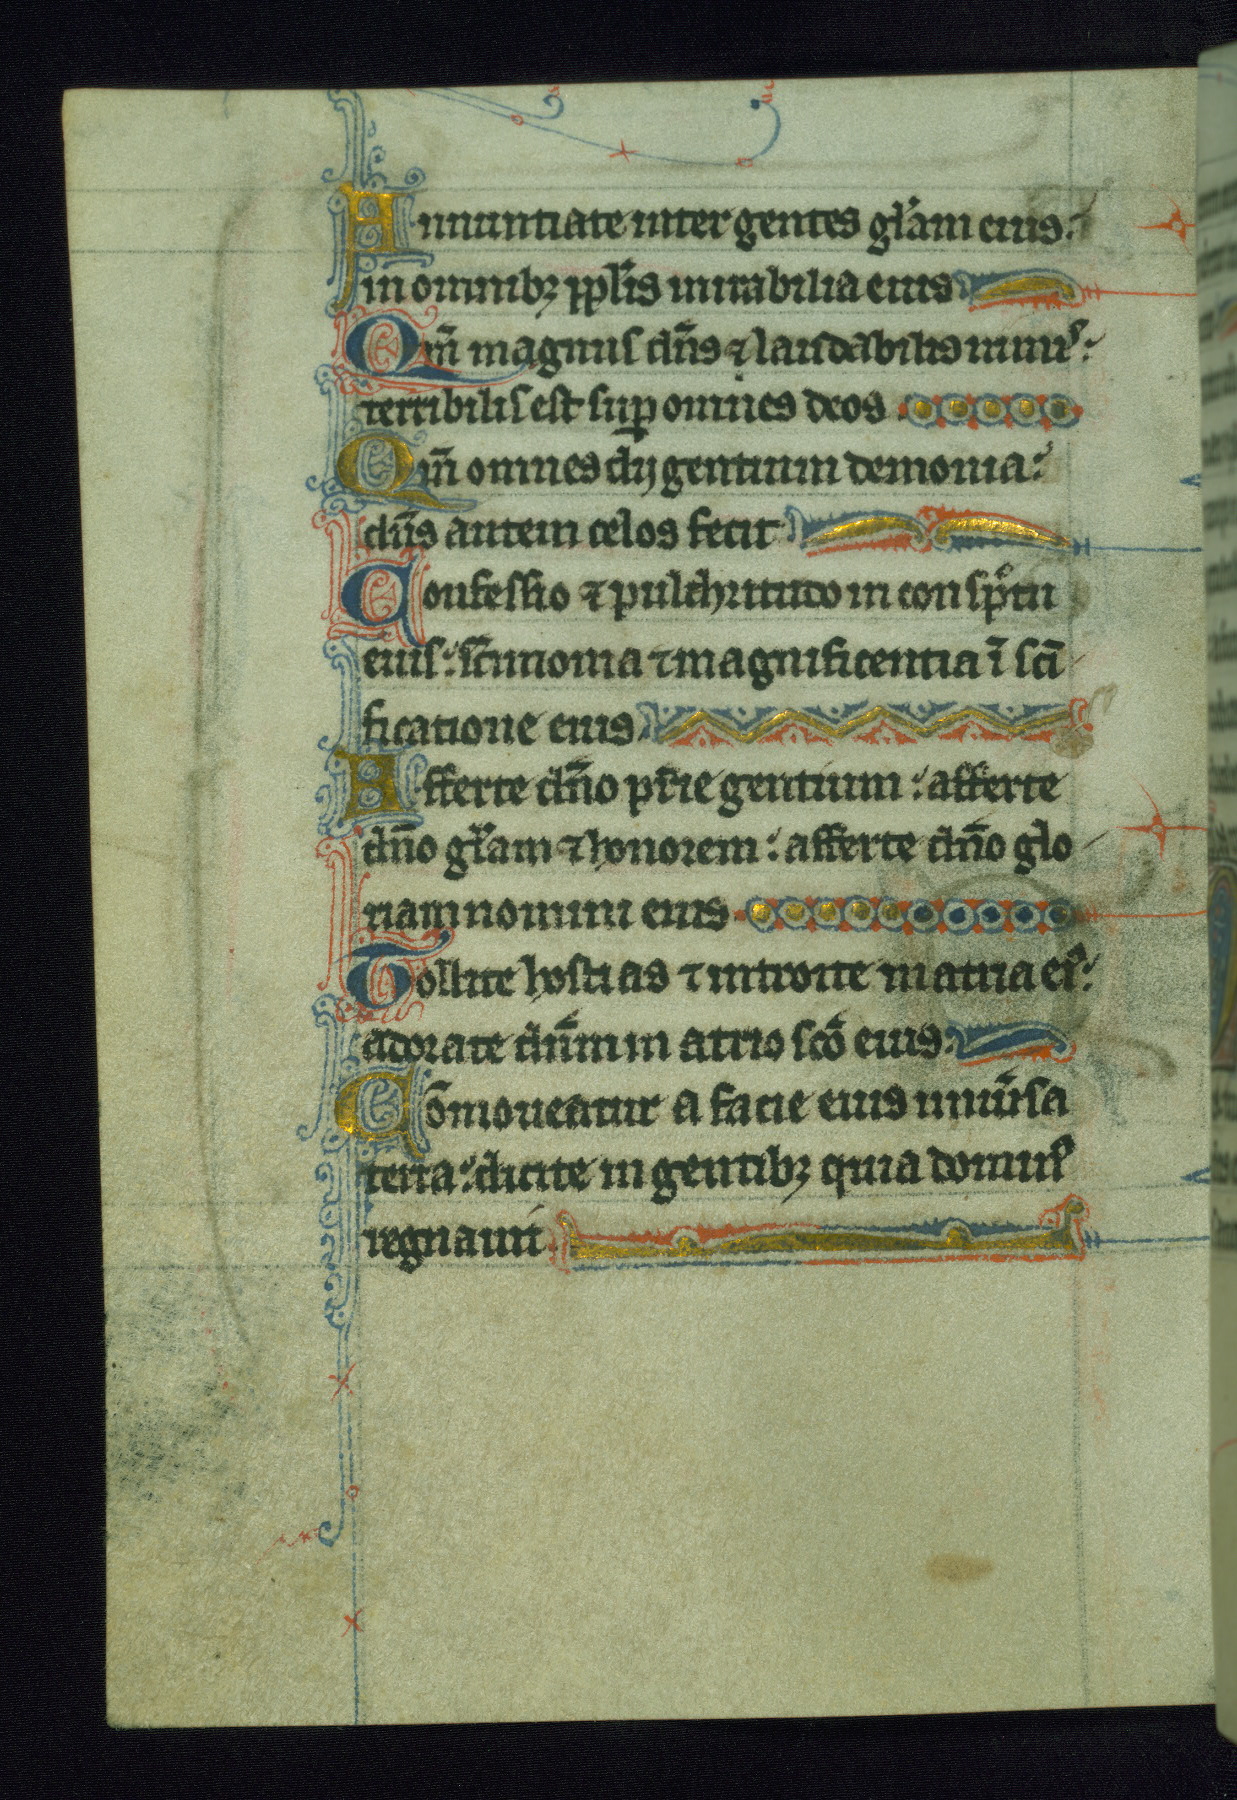 Annuntiate inter gentes gl̃am eius:
in omnibꝫ ppl̃is mirabilia eius
Qm̃ magnus dñs ⁊ laudabilis nimis:
terribilis est suꝑ omnes deos
Qm̃ omnes dij gentium demonia:
dñs autem celos fecit
Confessio ⁊ pulchritudo in conspc̃tu
eius: sc̃imonia ⁊ magnificentia ĩ sc̃i
ficatione eius
Afferte dñ̃o pr̃ie gentium: afferte
dño gl̃am ⁊ honorem: afferte dño glo
riam nomini eius
Tollite hostias ⁊ introite in atria eiˀ:
adorate dñ̃m in atrio sc̃o eius.
Cõmoueatur a facie eius uniũsa
terra: dicite in gentibꝫ quia dominˀ
regnauit